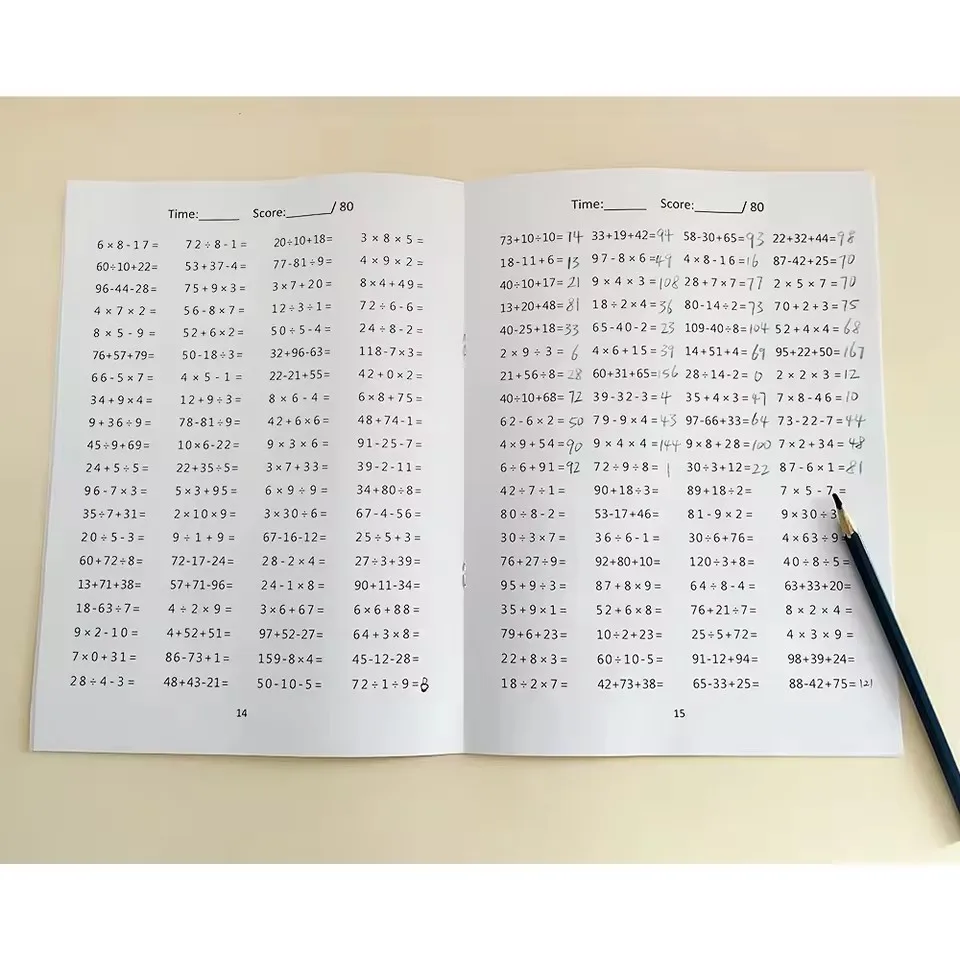 Time:______ Score:______/ 80
6×8-17= 72÷8-1= 20÷10+18= 3×8×5=
60÷10+22= 53+37-4= 77-81÷9= 4×9×2=
96-44-28= 75+9×3= 3×7+20= 8×4+49=
4×7×2= 56-8×7= 12÷3÷1= 72÷6-6=
8×5-9= 52+6×2= 50÷5-4= 24÷8-2=
76+57+79= 50-18÷3= 32+96-63= 118-7×3=
66-5×7= 4×5-1= 22-21+55= 42+0×2=
34+9×4= 12+9÷3= 8×6-4= 6×8+75=
9+36÷9= 78-81÷9= 42+6×6= 48+74-1=
45÷9+69= 10×6-22= 9×3×6= 91-25-7=
24+5÷5= 22+35÷5= 3×7+33= 39-2-11=
96-7×3= 5×3+95= 6×9÷9= 34+80÷8=
35÷7+31= 2×10×9= 3×30÷6= 67-4-56=
20÷5-3= 9÷1+9= 67-16-12= 25÷5+3=
60+72÷8= 72-17-24= 28-2×4= 27÷3+39=
13+71+38= 57+71-96= 24-1×8= 90+11-34=
18-63÷7= 4÷2×9= 3×6+67= 6×6+88=
9×2-10= 4+52+51= 97+52-27= 64+3×8=
7×0+31= 86-73+1= 159-8×4= 45-12-28=
28÷4-3= 48+43-21= 50-10-5= 72÷1÷9=8
14
Time:______ Score:______/ 80
73+10÷10=14 33+19+42=94 58-30+65=93 22+32+44=98
18-11+6=13 97-8×6=49 4×8-16=16 87-42+25=70
40÷10+17=21 9×4×3=108 28+7×7=77 2×5×7=70
13+20+48=81 18÷2×4=36 80-14÷2=73 70+2+3=75
40-25+18=33 65-40-2=23 109-40÷8=104 52+4×4=68
2×9÷3=6 4×6+15=39 14+51+4=69 95+22+50=167
21+56÷8=28 60+31+65=156 28÷14-2=0 2×2×3=12
40÷10+68=72 39-32-3=4 35+4×3=47 7×8-46=10
62-6×2=50 79-9×4=43 97-66+33=64 73-22-7=44
4×9+54=90 9×4×4=144 9×8+28=100 7×2+34=48
6÷6+91=92 72÷9÷8=1 30÷3+12=22 87-6×1=81
42÷7÷1= 90+18÷3= 89+18÷2= 7×5-7=
80÷8-2= 53-17+46= 81-9×2= 9×30÷3
30÷3×7= 36÷6-1= 30÷6+76= 4×63÷9
76+27÷9= 92+80+10= 120÷3+8= 40÷8÷5=
95+9÷3= 87+8×9= 64÷8-4= 63+33+20=
35+9×1= 52+6×8= 76+21÷7= 8×2×4=
79+6+23= 10÷2+23= 25÷5+72= 4×3×9=
22+8×3= 60÷10-5= 91-12+94= 98+39+24=
18÷2×7= 42+73+38= 65-33+25= 88-42+75=121
15